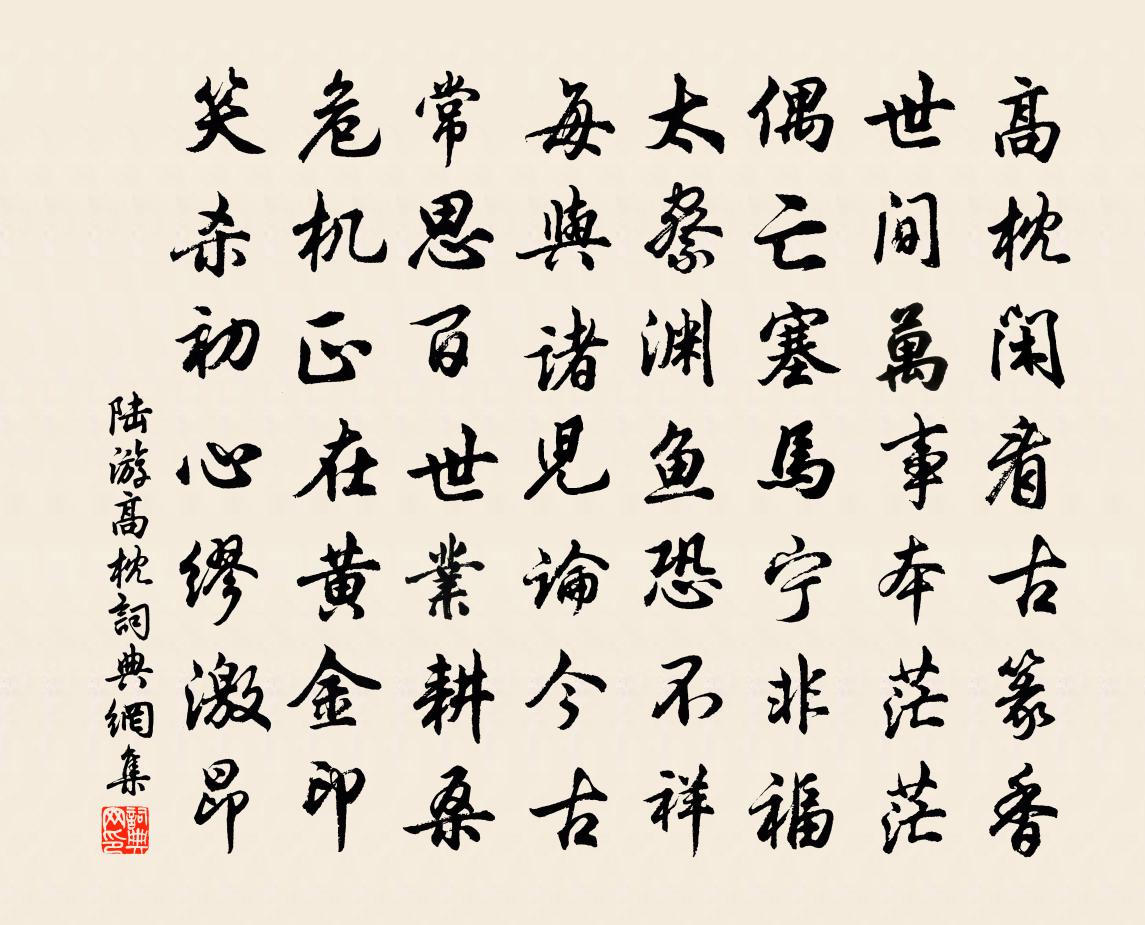 高枕閑看古篆香
世间萬事本茫茫
偶亡塞馬宁非福
太察渊鱼恐不祥
每與诸児论今古
常思百世業耕桑
危机正在黄金印
笑杀初心缪激昂
陆游高枕詞典網集
詞典网印